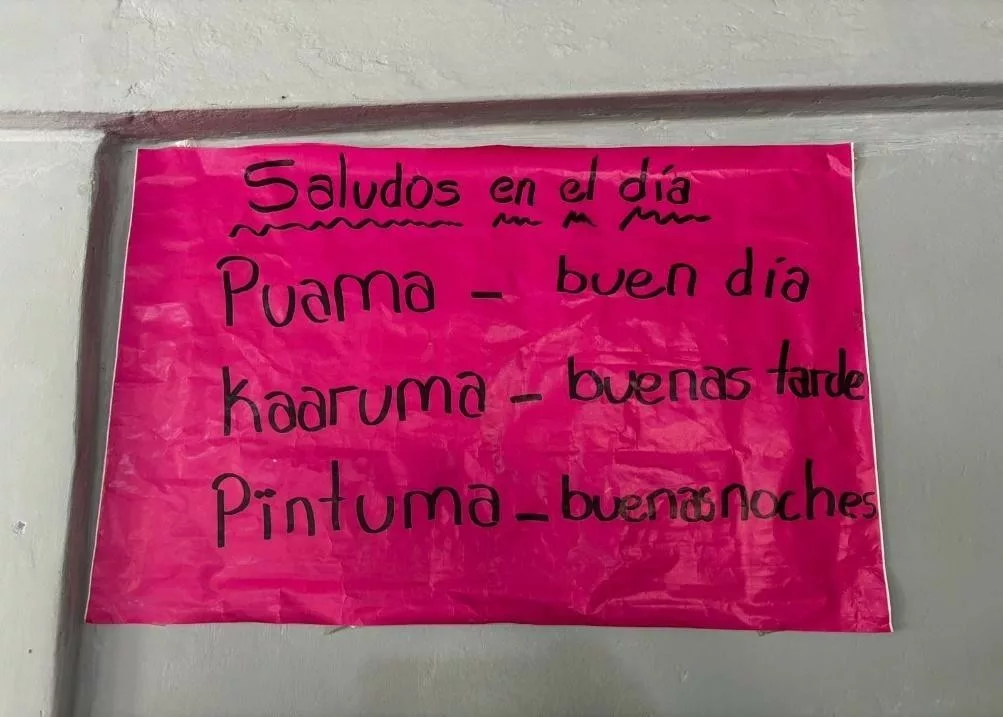 Saludos en el día
Puama - buen día
Kaaruma - buenas tarde
Pïntuma - buenas noches